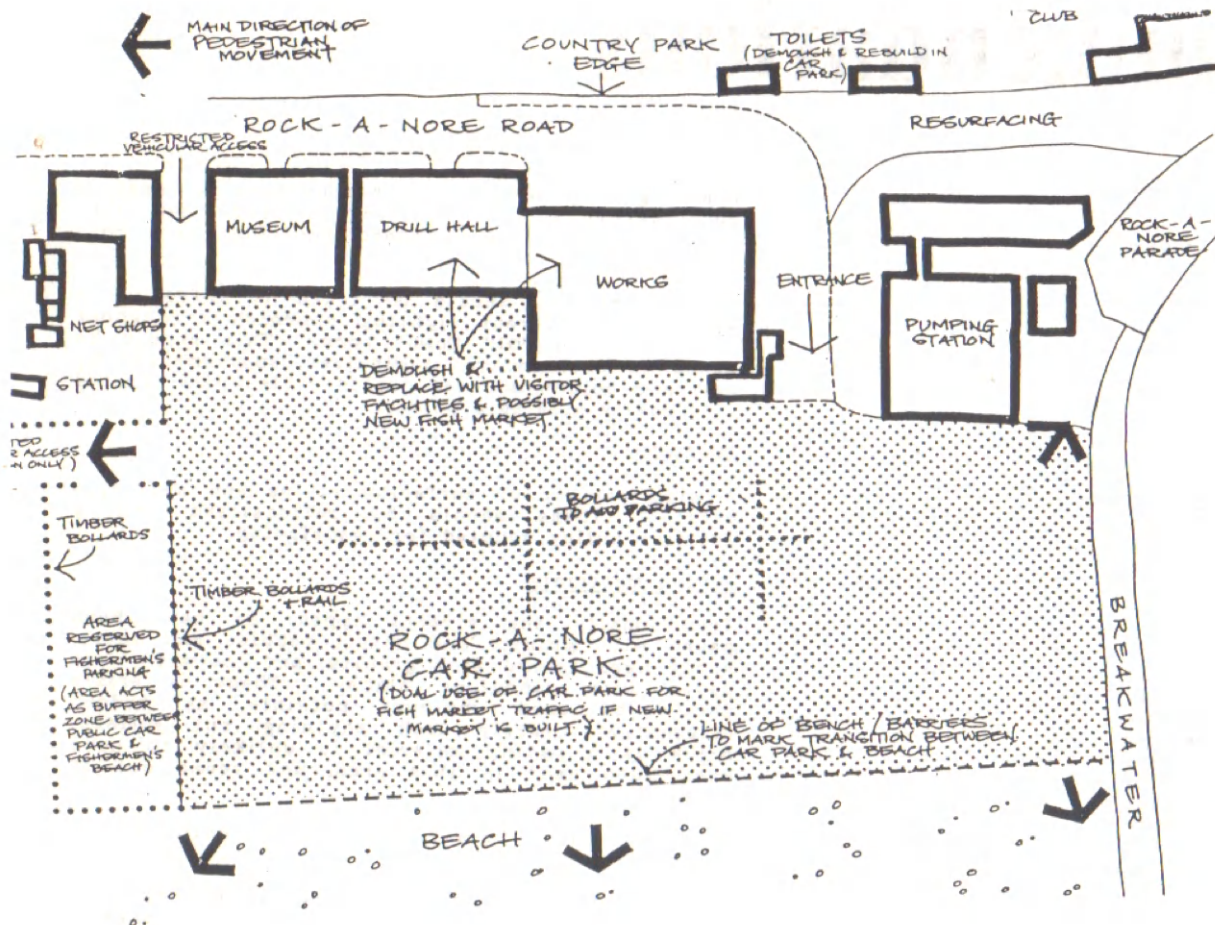 MAIN DIRECTION OF
PEDESTRIAN
MOVEMENT
COUNTRY PARK
EDGE
TOILETS
(DEMOLISH & REBUILD IN
CAR
PARK)
CLUB
ROCK-A-NORE ROAD
RESTRICTED
VEHICULAR ACCESS
RESURFACING
MUSEUM
DRILL HALL
WORKS
ENTRANCE
PUMPING
STATION
ROCK-A-
NORE
PARADE
NET SHOPS
STATION
DEMOLISH &
REPLACE WITH VISITOR
FACILITIES & POSSIBLY
NEW FISH MARKET
ACCESS
ONLY)
BOLLARDS
TO PARKING
TIMBER
BOLLARDS
TIMBER BOLLARDS
+ RAIL
AREA
RESERVED
FOR
FISHERMEN'S
PARKING
(AREA ACTS
AS BUFFER
ZONE BETWEEN
PUBLIC CAR
PARK &
FISHERMEN'S
BEACH)
ROCK-A-NORE
CAR PARK
(DUAL USE OF CAR PARK FOR
FISH MARKET TRAFFIC IF NEW
MARKET IS BUILT.)
LINE OF BENCH/BARRIERS
TO MARK TRANSITION BETWEEN
CAR PARK & BEACH
BREAKWATER
BEACH